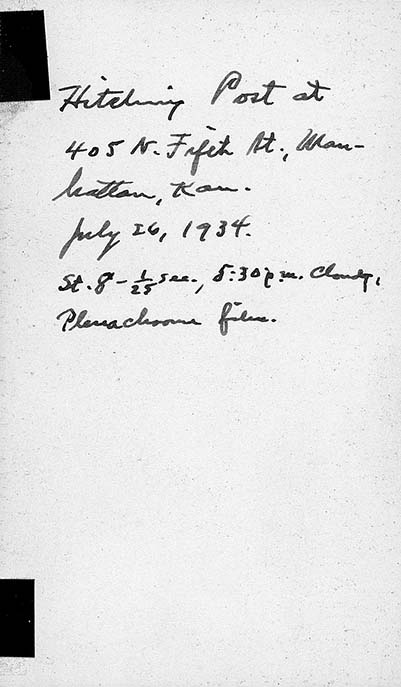 Hitching Post at
405 N. Fifth St., Man-
hattan, Kan.
July 26, 1934.
St. 8 - 1/25 sec., 5:30 p.m. Cloudy,
Plenachrome film.